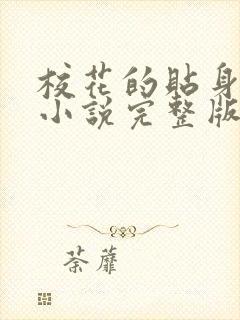 校花的贴身
小説完整版
荼蘼